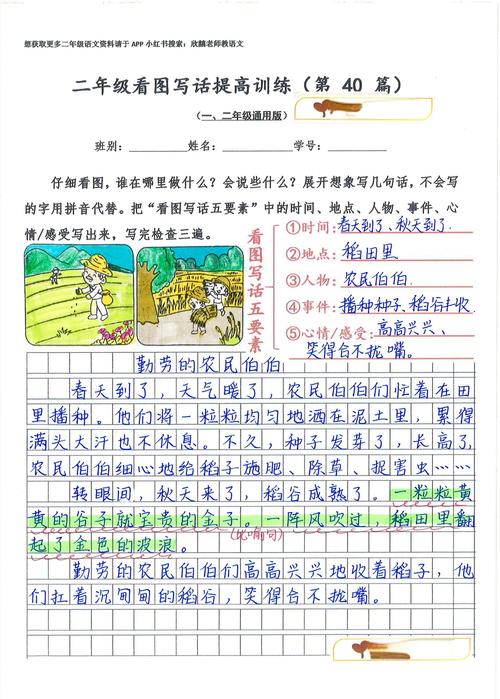 想获取更多二年级语文资料请于 APP 小红书搜索：欣麟老师教语文
二年级看图写话提高训练（第 40 篇）
（一、二年级通用版）
班别：姓名：学号：
仔细看图，谁在哪里做什么？会说些什么？展开想象写几句话，不会写
的字用拼音代替。把“看图写话五要素”中的时间、地点、人物、事件、心
情/感受写出来，写完检查三遍。
看图写话五要素
①时间：春天到了、秋天到了
②地点：稻田里
③人物：农民伯伯
④事件：播种种子、稻谷丰收
⑤心情/感受：高高兴兴、
笑得合不拢嘴。
勤劳的农民伯伯
春天到了，天气暖了，农民伯伯们忙着在田
里播种。他们将一粒粒均匀地洒在泥土里，累得
满头大汗也不休息。不久，种子发芽了，长高了，
农民伯伯细心地给稻子施肥、除草、捉害虫……
转眼间，秋天来了，稻谷成熟了。一粒粒黄
黄的谷子就宝贵的金子。一阵风吹过，稻田里翻
起了金色的波浪。
（比喻句）
勤劳的农民伯伯们高高兴兴地收着稻子，他
们扛着沉甸甸的稻谷，笑得合不拢嘴。